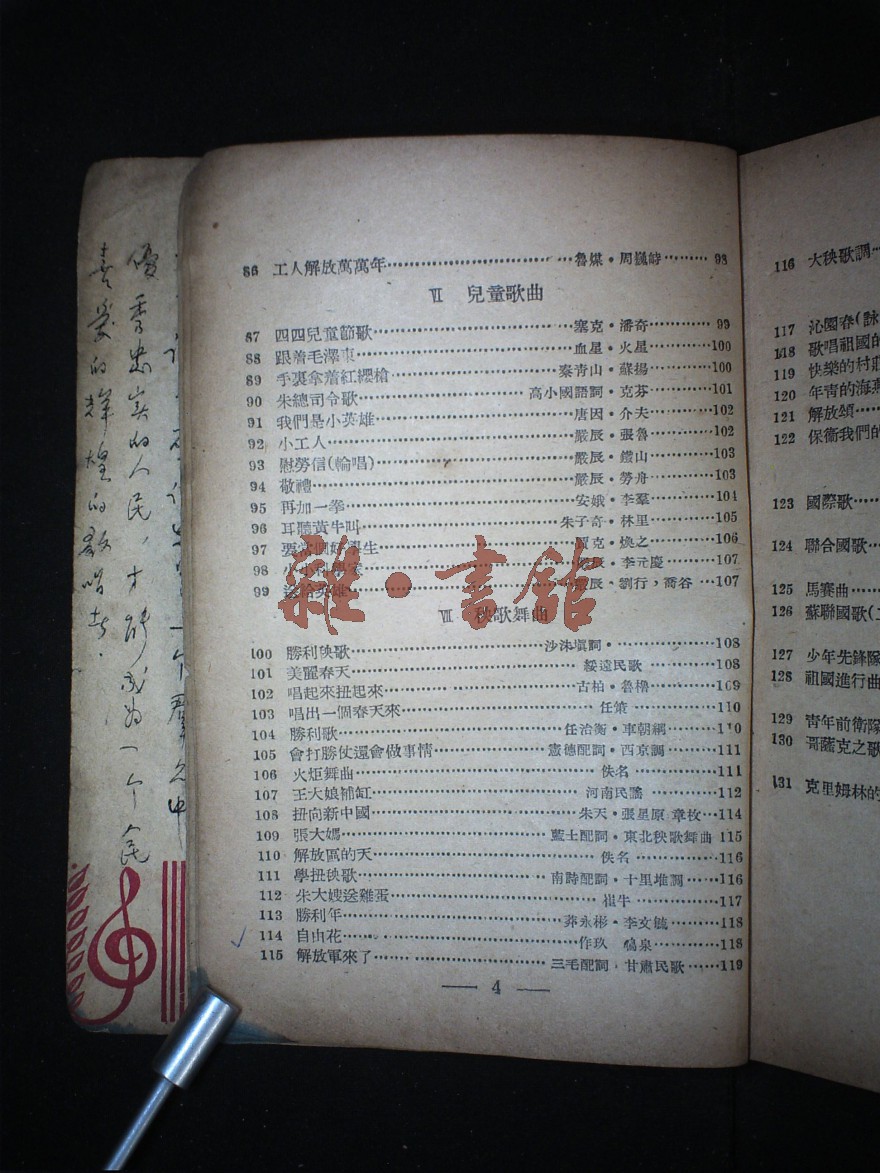 86 工人解放萬萬年 魯煤·周巍峙 98
Ⅵ 兒童歌曲
87 四四兒童節歌 塞克·潘奇 99
88 跟着毛澤東 血星·火星 100
89 手裏拿着紅纓槍 秦青山·蘇揚 100
90 朱總司令歌 高小國語詞·克芬 101
91 我們是小英雄 唐因·介夫 102
92 小工人 嚴辰·張魯 102
93 慰勞信(輪唱) 嚴辰·鐵山 103
94 敬禮 嚴辰·勞舟 103
95 再加一拳 安娥·李羣 104
96 耳聽黃牛叫 朱子奇·林里 105
97 要當個好學生 克·煥之 106
98 小小科學家 嚴辰·李元慶 107
99 送給英雄 嚴辰、劉行,喬谷 107
Ⅶ 秧歌舞曲
100 勝利秧歌 沙洙填詞· 108
101 美麗春天 綏遠民歌 108
102 唱起來扭起來 古柏·魯櫓 109
103 唱出一個春天來 任策 110
104 勝利歌 任治衡·車朝綱 110
105 會打勝仗還會做事情 憲德配詞·西京調 111
106 火炬舞曲 佚名 111
107 王大娘補缸 河南民謠 112
108 扭向新中國 朱天·張星原 章枚 114
109 張大媽 藍士配詞·東北秧歌舞曲 115
110 解放區的天 佚名 116
111 學扭秧歌 南時配詞·十里堆調 116
112 朱大嫂送雞蛋 崔牛 117
113 勝利年 莽永彬·李文毓 118
114 自由花 作玖 鳴泉 118
115 解放軍來了 三毛配詞·甘肅民歌 119
— 4 —
116 大秧歌調
117 沁園春(詠
118 歌唱祖國的
119 快樂的村莊
120 年青的海燕
121 解放頌
122 保衞我們的
123 國際歌
124 聯合國歌
125 馬賽曲
126 蘇聯國歌(
127 少年先鋒隊
128 祖國進行曲
129 青年前衛隊
130 哥薩克之歌
131 克里姆林的
優秀忠實的人民,才能成為一个人民
喜愛的輝煌的歌唱者.
雜·書館